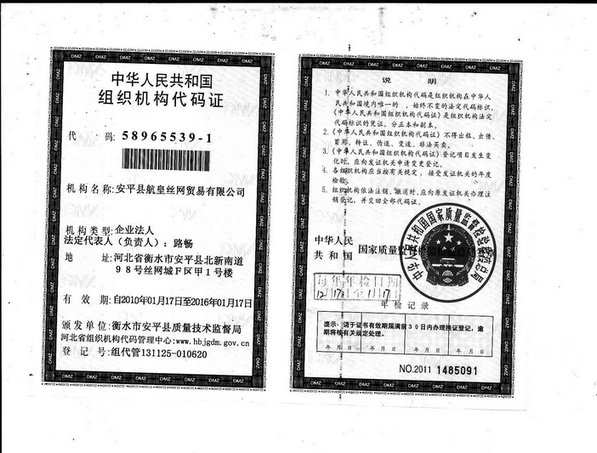 中华人民共和国
组织机构代码证
代 码: 58965539-1
机构名称: 安平县航皇丝网贸易有限公司
机构类型: 企业法人
法定代表人（负责人）: 路畅
地 址: 河北省衡水市安平县北新南道
98号丝网城F区甲1号楼
有 效 期: 自2010年01月17日至2016年01月17日
颁发单位: 衡水市安平县质量技术监督局
河北省组织机构代码管理中心:www.hbjgdm.gov.cn
登 记 号: 组代管131125-010620
说 明
1. 中华人民共和国组织机构代码是组织机构在中华人
民共和国境内唯一的、始终不变的法定代码标识，
《中华人民共和国组织机构代码证》是组织机构法定
代码标识的凭证，分正本和副本。
2. 《中华人民共和国组织机构代码证》不得出租、出借、
冒用、转让、伪造、变造、非法买卖。
3. 《中华人民共和国组织机构代码证》登记项目发生变
化时，应向发证机关申请变更登记。
4. 各组织机构应当按有关规定，接受发证机关的年度
检验。
5. 组织机构依法注销、撤消时，应向原发证机关办理注
销登记，并交回全部代码证。
中华人民
共 和 国
国家质量监督
中华人民共和国国家质量监督检验检疫总局
年检日期
年 检 记 录
提示: 请于证书有效期届满前30日内办理换证登记，逾
期将按有关规定处理。
年 月 日 年 月 日 年 月 日 年 月 日
NO.2011 1485091